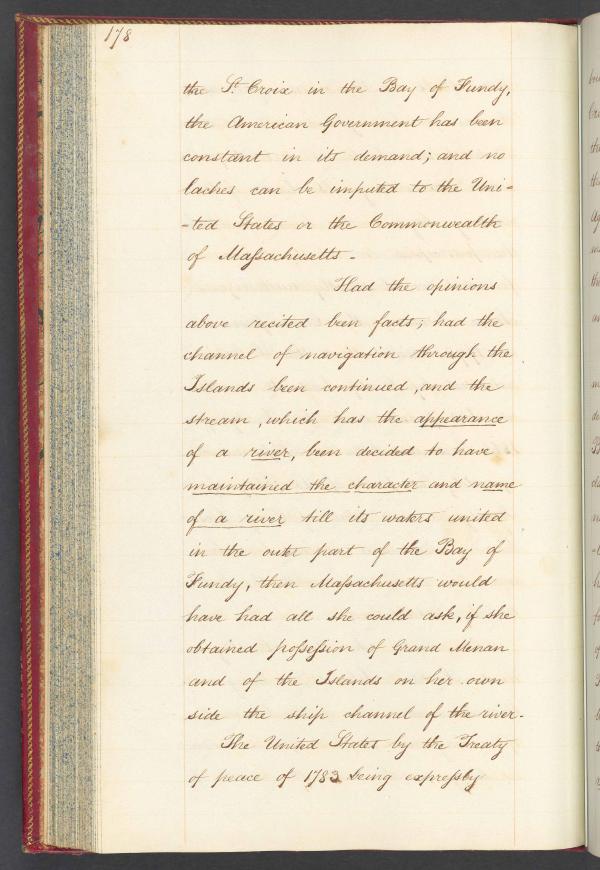 178
the St. Croix in the Bay of Fundy,
the American Government has been
constant in its demand; and no
laches can be imputed to the Uni-
-ted States or the Commonwealth
of Maſsachusetts.
Had the opinions
above recited been facts; had the
channel of navigation through the
Islands been continued, and the
stream, which has the appearance
of a river, been decided to have
maintained the character and name
of a river till its waters united
in the outer part of the Bay of
Fundy, then Maſsachusetts would
have had all she could ask, if she
obtained poſseſsion of Grand Menan
and of the Islands on her own
side the ship channel of the river.
The United States by the Treaty
of peace of 1783 being expreſsly